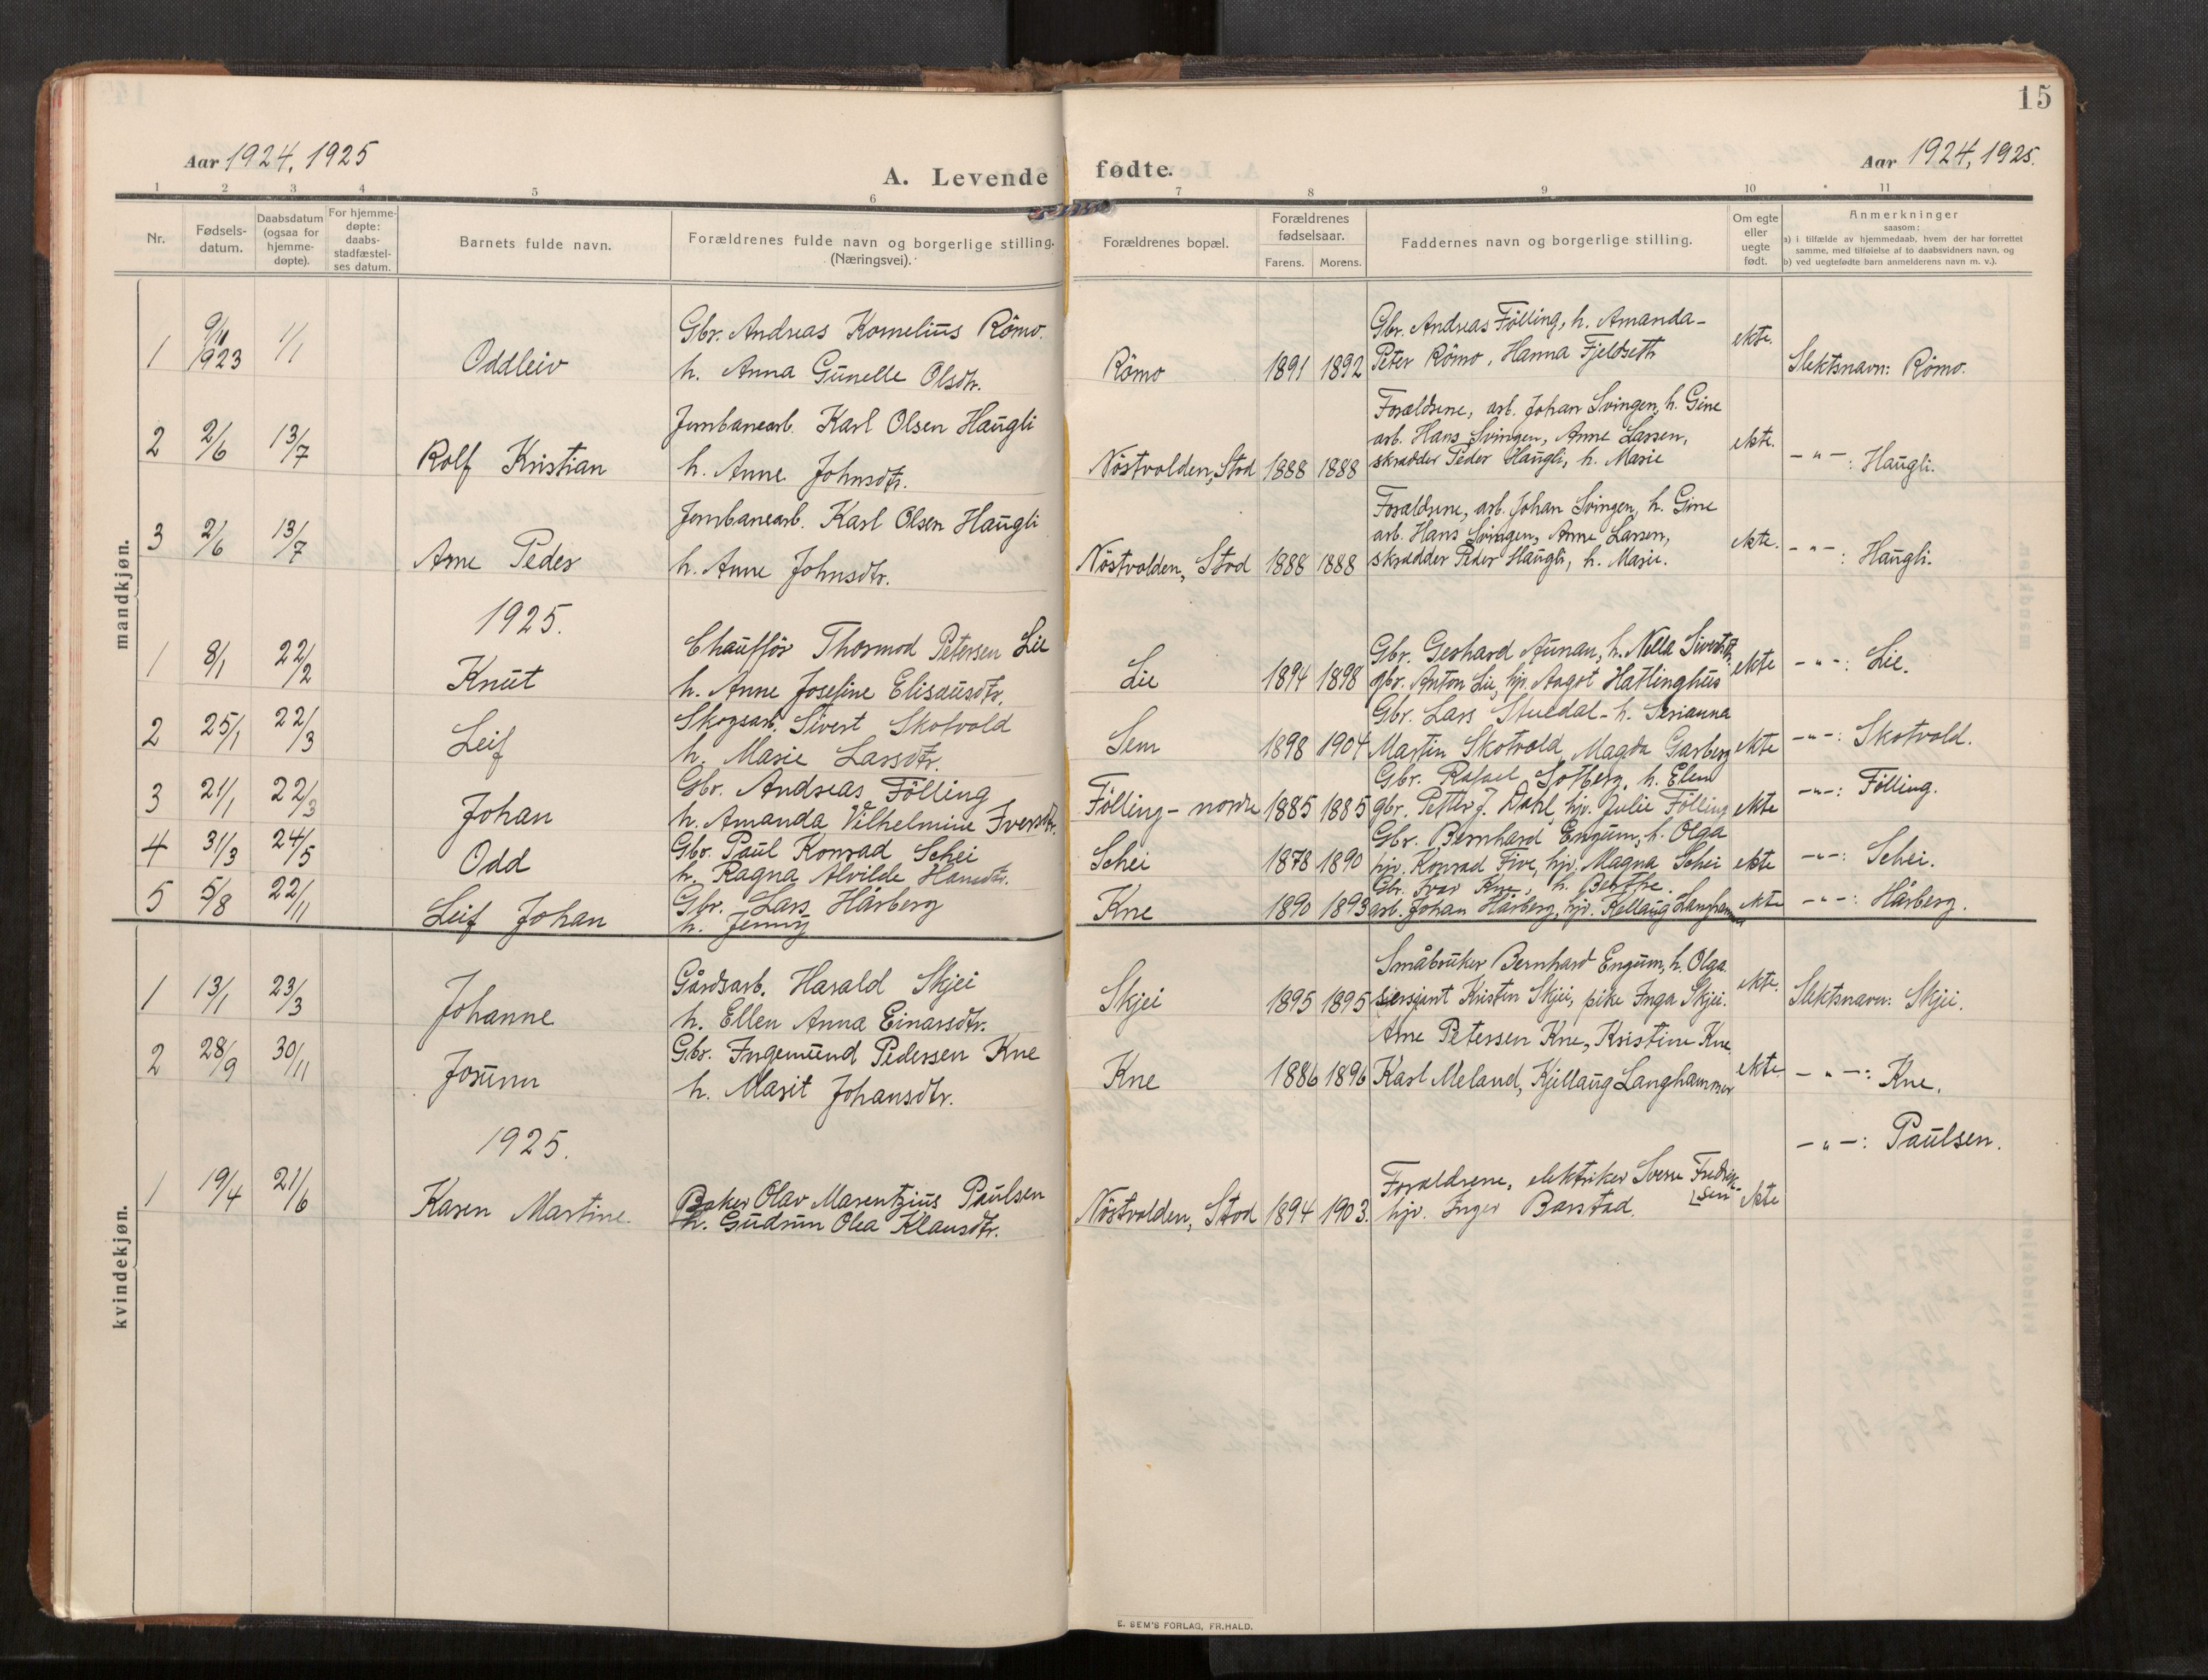 15
Aar 1924, 1925
A. Levende fødte.
Aar 1924, 1925.
1 2 3 4 5 6 7 8 9 10 11
Nr.
Fødsels-
datum.
Daabsdatum
(ogsaa for
hjemme-
døpte).
For hjemme-
døpte:
daabs-
stadfæstel-
ses datum.
Barnets fulde navn.
Forældrenes fulde navn og borgerlige stilling.
(Næringsvei).
Forældrenes bopæl.
Forældrenes
fødselsaar.
Farens. Morens.
Faddernes navn og borgerlige stilling.
Om egte
eller
uegte
født.
Anmerkninger
saasom:
a) i tilfælde av hjemmedaab, hvem der har forrettet
samme, med tilføielse af to daabsvidners navn, og
b) ved uegtefødte barn anmelderens navn m. v.).
mandkjøn.
1 9/11 1923 1/1 Oddleiv
Gbr. Andreas Kornelius Römo.
h. Anna Gunelle Olsdtr.
Römo 1891 1892
Gbr. Andreas Fölling, h. Amanda-
Peter Römo, Hanna Fjeldseth
ekte. Slektsnavn: Römo.
2 2/6 13/7 Rolf Kristian
Jernbanearb. Karl Olsen Haugli
h. Anne Johnsdtr.
Nöstvolden, Stod 1888 1888
Forældrene, arb. Johan Svingen, h. Gine
arb. Hans Svingen, Anne Larsen,
skrædder Peder Haugli, h. Marie
ekte. -"-: Haugli.
3 2/6 13/7 Arne Peder
Jernbanearb. Karl Olsen Haugli
h. Anne Johnsdtr.
Nöstvolden, Stod 1888 1888
Forældrene, arb. Johan Svingen, h. Gine
arb. Hans Svingen, Anne Larsen,
skrædder Peder Haugli, h. Marie.
ekte. -"-: Haugli.
1925.
1 8/1 22/2 Knut
Chaufför Thormod Petersen Lie
h. Anne Josefine Elisæusdtr.
Lie 1894 1898
Gbr. Gerhard Aunan, h. Nella Sivertsdtr,
gbr. Anton Lie, hjv. Aagot Hatlinghus
ekte -"-: Lie.
2 25/1 22/3 Leif
Skogsarb. Sivert Skotvold
h. Marie Larsdtr.
Sem 1898 1904
Gbr. Lars Stuedal - h. Serianna
Martin Skotvold, Magda Garberg
ekte -"-: Skotvold.
3 21/1 22/3 Johan
Gbr. Andreas Fölling
h. Amanda Vilhelmine Iversdtr.
Fölling - nordre 1885 1885
Gbr. Rafael Solberg, h. Elen
gbr. Petter J. Dahl, hjv. Julie Fölling
ekte -"-: Fölling.
4 31/3 24/5 Odd
Gbr. Paul Konrad Schei
h. Ragna Alvilde Hansdtr.
Schei 1878 1890
Gbr. Bernhard Engum, h. Olga
hjv. Konrad Five, hjv. Magna Schei
ekte -"-: Schei.
5 5/8 22/11 Leif Johan
Gbr. Lars Hårberg
h. Jenny
Kne 1890 1893
Gbr. Ivar Kne, h. Berthe.
arb. Johan Hårberg, hjv. Kellaug Langhammer
ekte -"-: Hårberg.
kvindekjøn.
1 13/1 23/3 Johanne
Gårdsarb. Harald Skjei
h. Ellen Anna Einarsdtr.
Skjei 1895 1895
Småbruker Bernhard Engum, h. Olga
sersjant Kristen Skjei, pike Inga Skjei.
ekte. Slektsnavn: Skjei.
2 28/9 30/11 Jorunn
Gbr. Ingemund Pedersen Kne
h. Marit Johansdtr.
Kne 1886 1896
Arne Petersen Kne, Kristine Kne
Karl Meland, Kjellaug Langhammer
ekte. -"-: Kne.
1925.
1 19/4 21/6 Karen Martine.
Baker Olav Marentzius Paulsen
h. Gudrun Olea Klausdtr.
Nöstvolden, Stod 1894 1903.
Forældrene, elektriker Sverre Fredrik-
sen
hjv. Inger Barstad.
ekte -"-: Paulsen.
E. SEM'S FORLAG, FR.HALD.